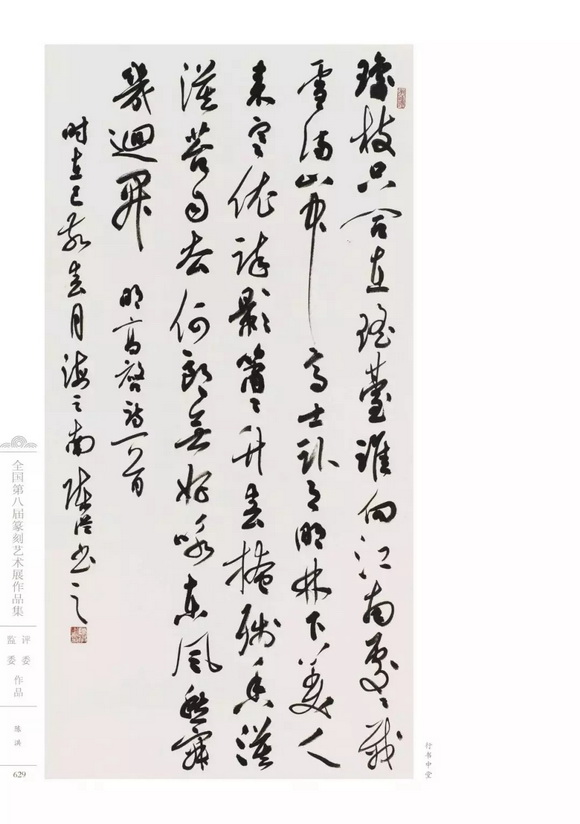 瓊枝只合在瑤臺誰向江南處〻栽
雪滿山中高士卧月明林下美人
来寒依疎影蕭〻竹春掩殘香漠
漠苔自去何郎無好咏東風愁寂
幾迴開 明高啓詩一首
时在己亥春月海之南陈洪书之
行书中堂
全国第八届篆刻艺术展作品集
评委
监委
作品
陈洪
629